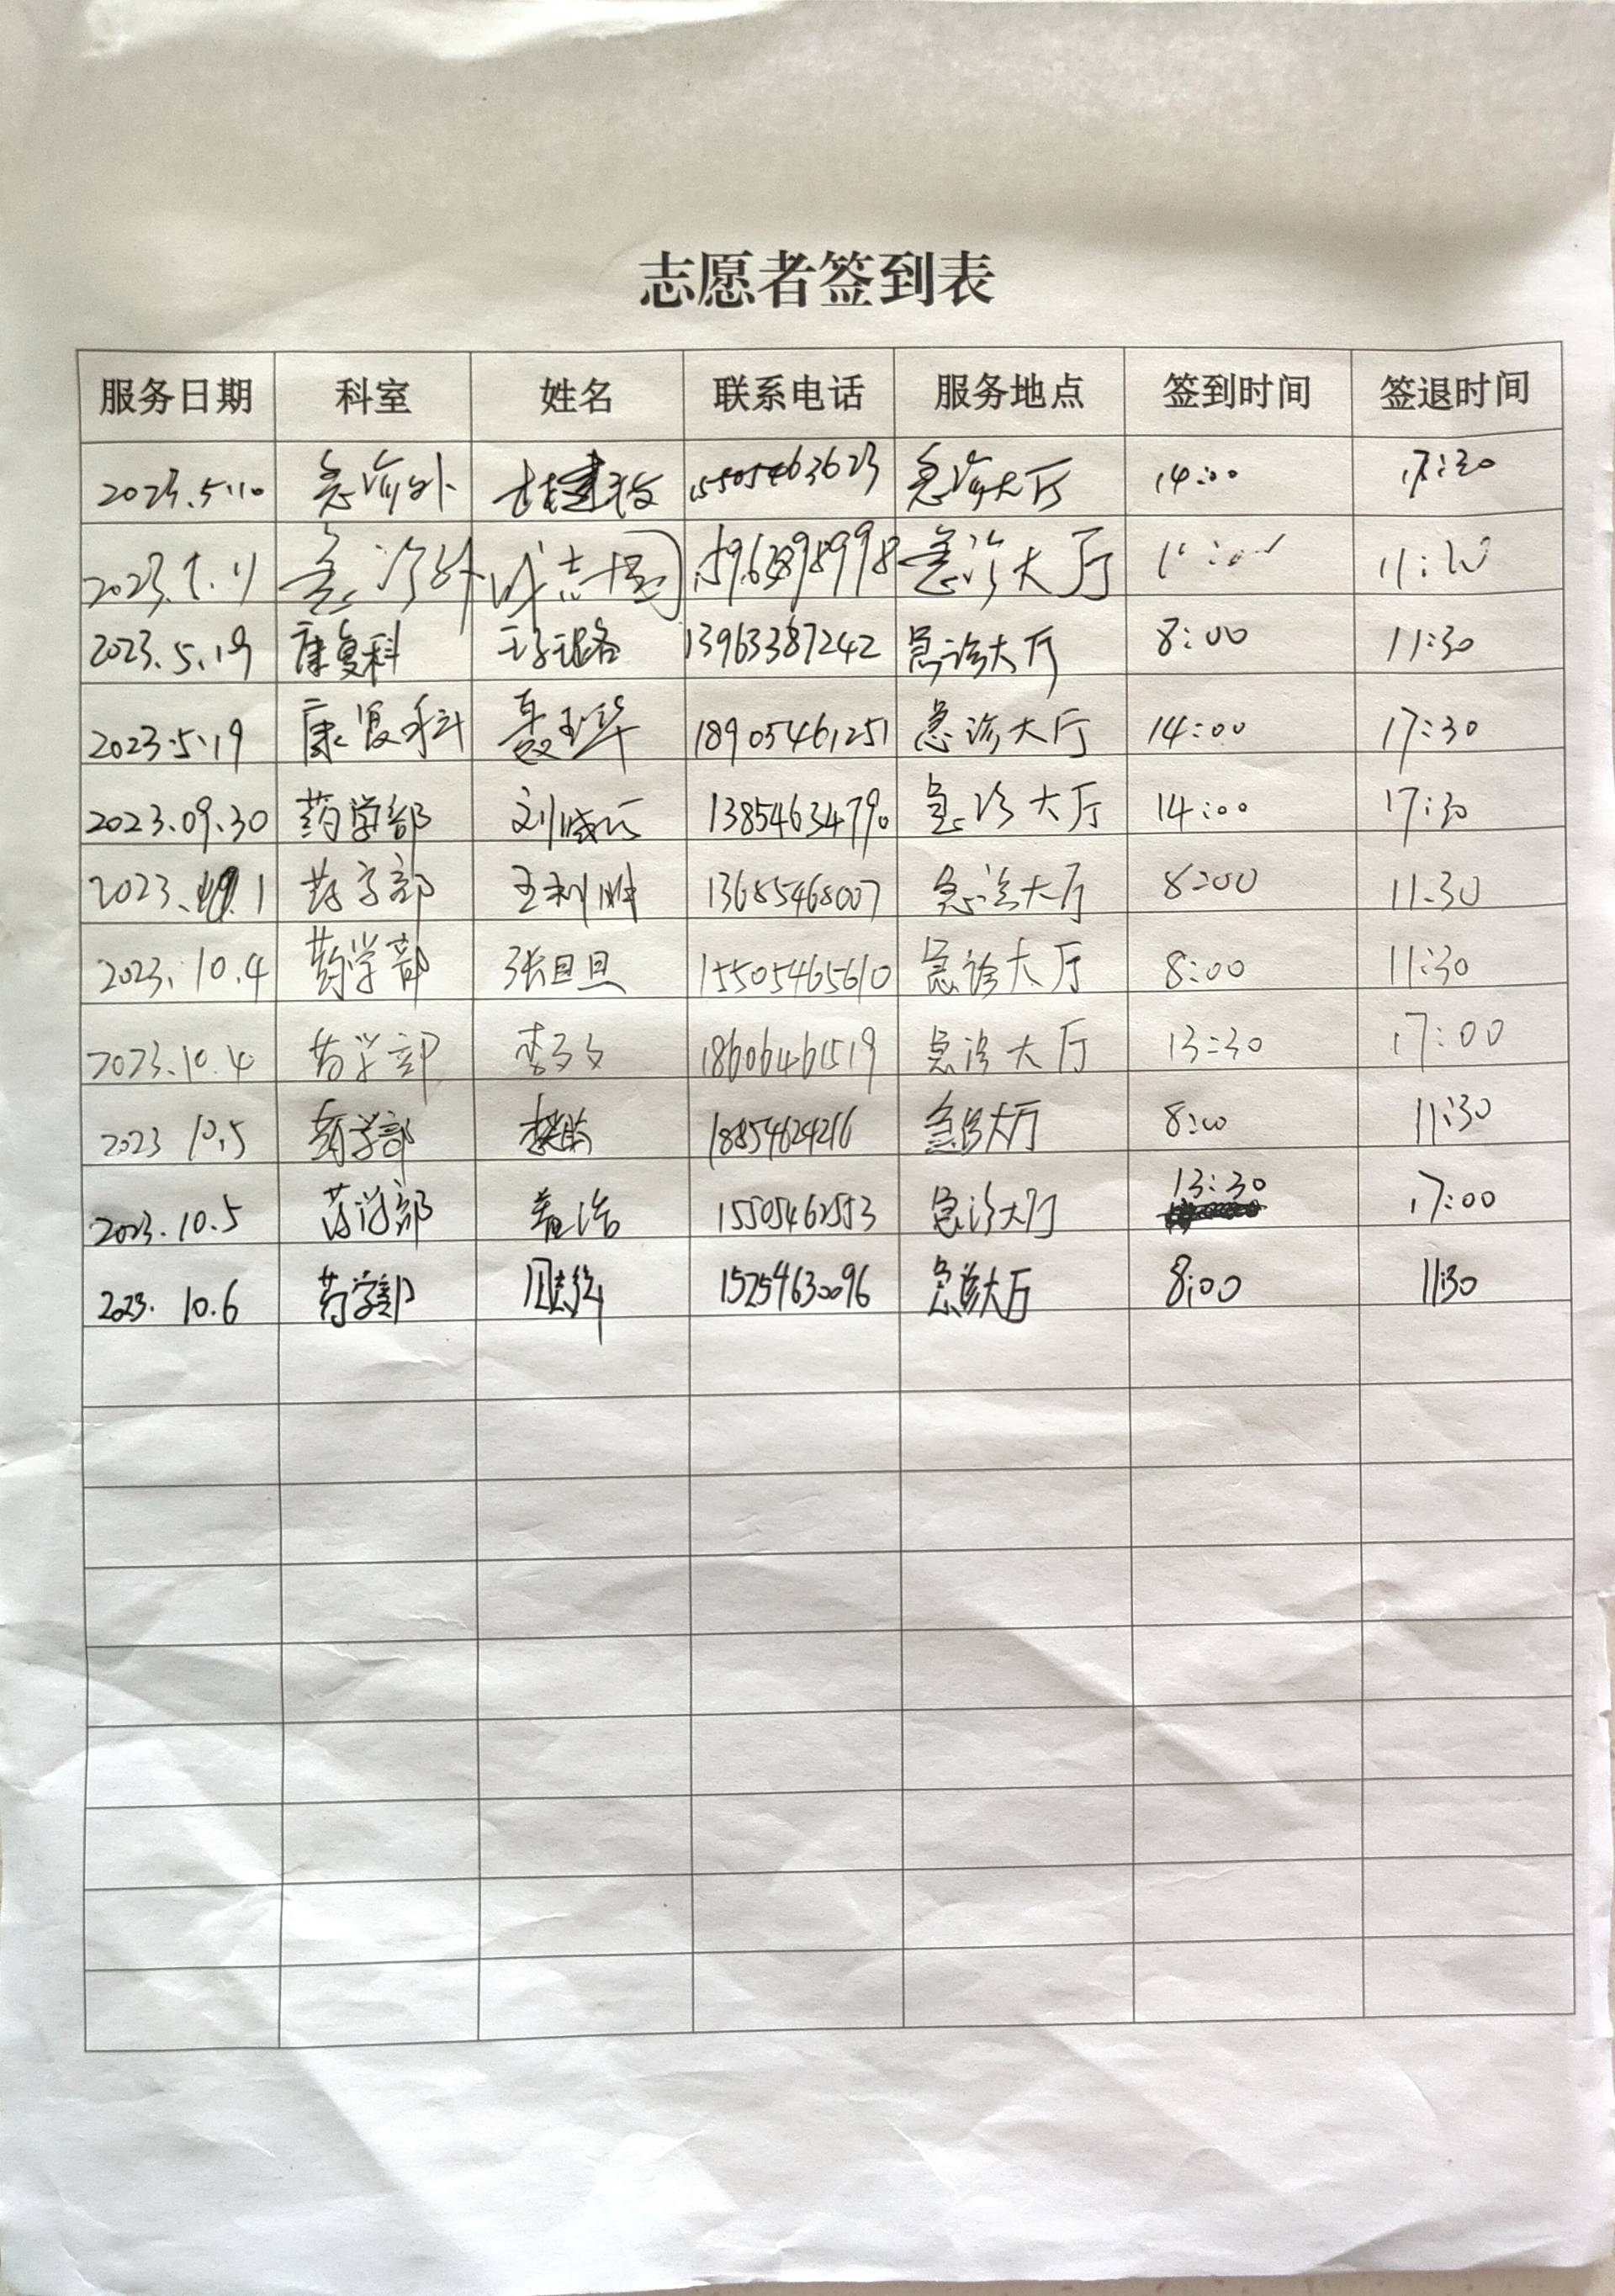 志愿者签到表
服务日期 科室 姓名 联系电话 服务地点 签到时间 签退时间
2023.5.10 急诊外 15505463623 急诊大厅 14:00 17:30
2023.5.11 急诊外 急诊大厅
2023.5.19 康复科 13963387242 急诊大厅 8:00 11:30
2023.5.19 康复科 聂玉华 18905461251 急诊大厅 14:00 17:30
2023.09.30 药学部 13854634790 急诊大厅 14:00 17:30
药学部 王利胜 13685468007 急诊大厅 8:00 11:30
2023.10.4 药学部 张旦旦 15505465610 急诊大厅 8:00 11:30
2023.10.4 药学部 李文文 18606461519 急诊大厅 13:30 17:00
2023 10.5 药学部 18854624216 急诊大厅 8:00 11:30
2023.10.5 药学部 15505462553 急诊大厅 13:30 17:00
2023.10.6 药学部 15254630096 急诊大厅 8:00 11:30